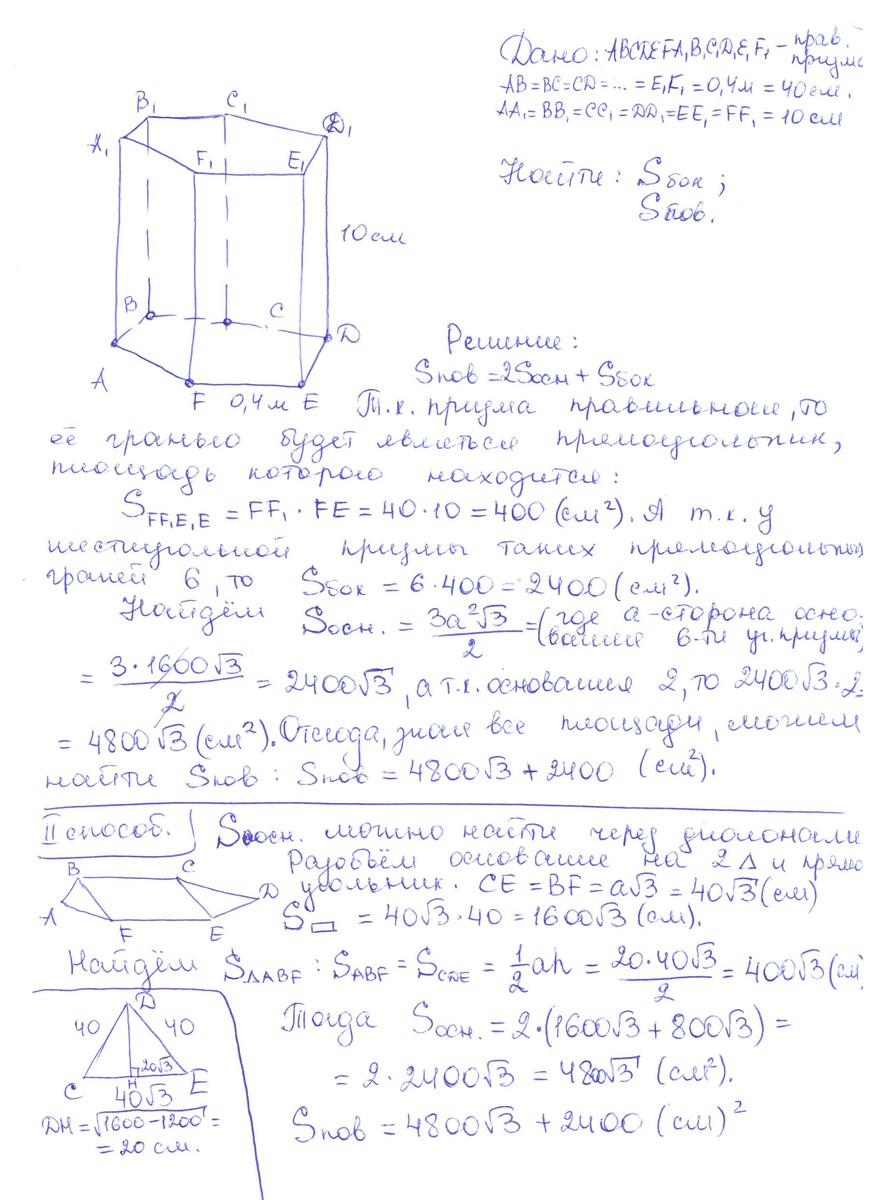 Дано: ABCDEFA₁B₁C₁D₁E₁F₁ - прав.
призма
AB=BC=CD=...=E₁F₁=0,4м=40см.
AA₁=BB₁=CC₁=DD₁=EE₁=FF₁=10см
Найти: Sбок;
Sпов.
B₁ C₁
A₁ D₁
F₁ E₁
10см
B C
D
A
F 0,4м E
Решение:
Sпов=2Sосн+Sбок
Т.к. призма правильная, то
её гранью будет являться прямоугольник,
площадь которого находится:
S_FF₁E₁E = FF₁·FE=40·10=400 (см²). А т.к. у
шестиугольной призмы таких прямоугольных
граней 6, то Sбок = 6·400=2400 (см²).
Найдём Sосн. = 3a²√3/2 = (где a-сторона осно-
вания 6-ти уг. призмы)
= 3·1600√3/2 = 2400√3, а т.к. основания 2, то 2400√3·2=
= 4800√3 (см²). Отсюда, зная все площади, можем
найти Sпов: Sпов = 4800√3+2400 (см²).
II способ. Sосн. можно найти через диагонали
Разобьём основание на 2 Δ и прямо
угольник. CE=BF=a√3=40√3 (см)
B C
D
A
F E
S▭ = 40√3·40=1600√3 (см).
Найдём S_ΔABF: S_ABF = S_CDE = 1/2 ah = 20·40√3/2 = 400√3 (см
D
40 40
20√3
C H E
40√3
DH=√1600-1200=
=20 см.
Тогда Sосн. = 2·(1600√3+800√3)=
= 2·2400√3=4800√3 (см²).
Sпов=4800√3+2400 (см)²